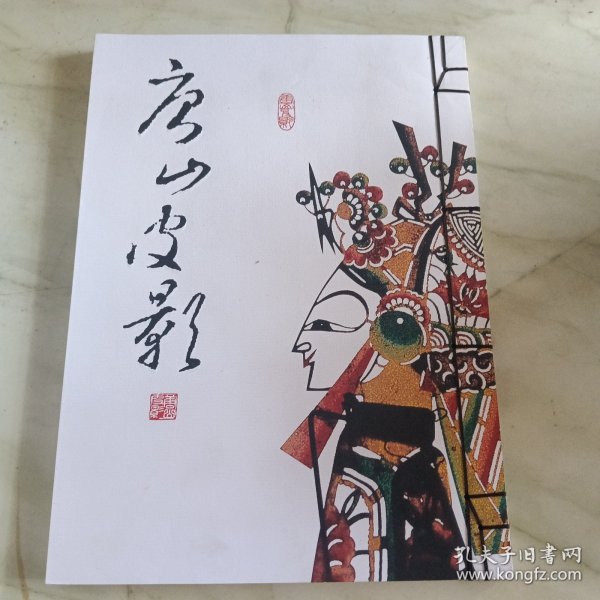 唐山皮影
孔夫子旧書网
www.kongfz.com